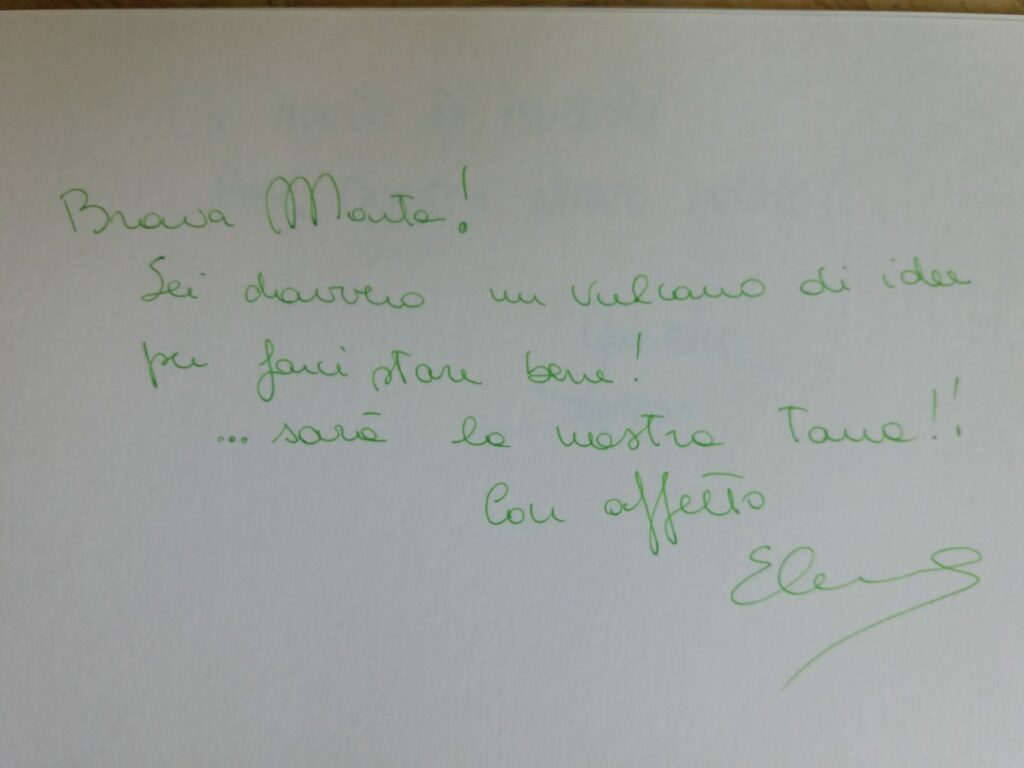 Brava Marta!
Sei davvero un vulcano di idee
per farci stare bene!
... sarà la nostra Tana!!
Con affetto
Elena